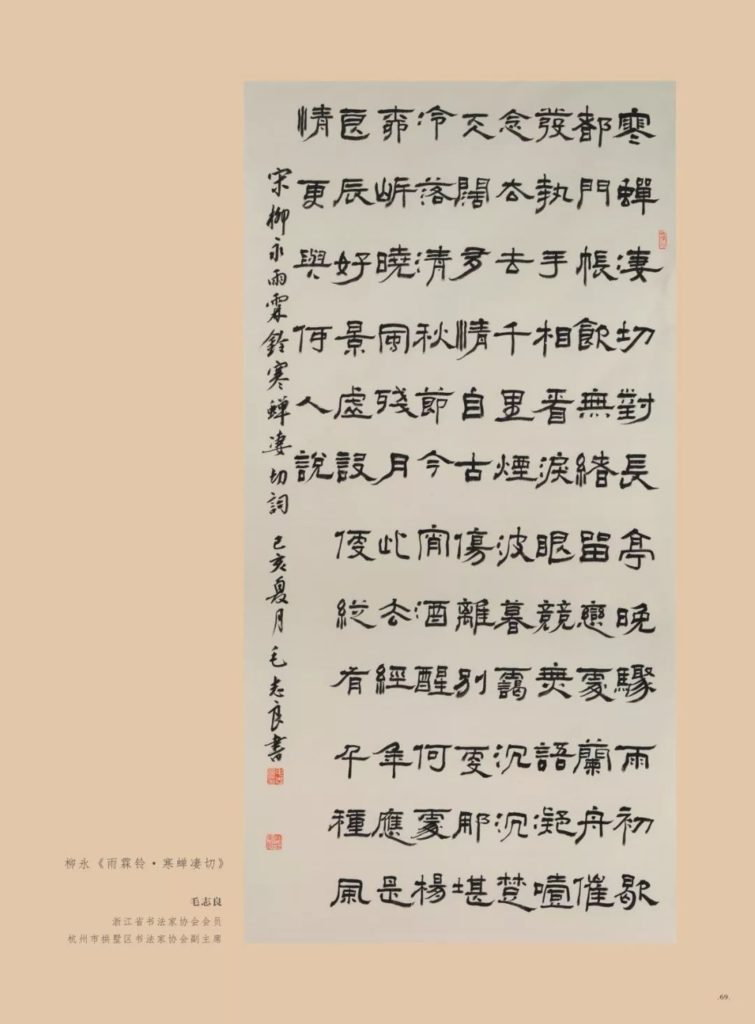 寒蟬淒切對長亭晚驟雨初歇
都門帳飲無緒留戀處蘭舟催
發執手相看淚眼競無語凝噎
念去去千里煙波暮靄沉沉楚
天闊多情自古傷離別更那堪
冷落清秋節今宵酒醒何處楊
柳岸曉風殘月此去經年應是
良辰好景虛設便縱有千種風
情更與何人說
宋柳永雨霖鈴寒蟬淒切詞 己亥夏月 毛志良書
柳永《雨霖铃·寒蝉凄切》
毛志良
浙江省书法家协会会员
杭州市拱墅区书法家协会副主席
.69.